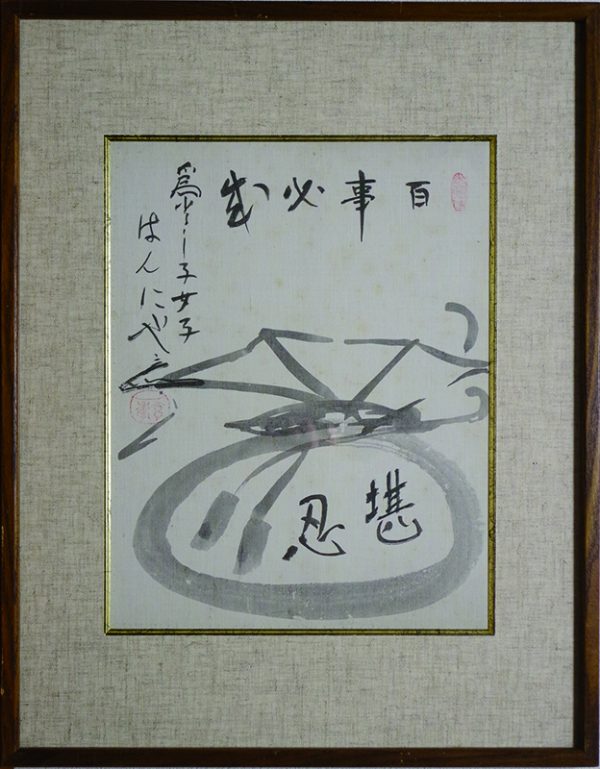 百事必成
為よし子女子
はんにや
堪忍